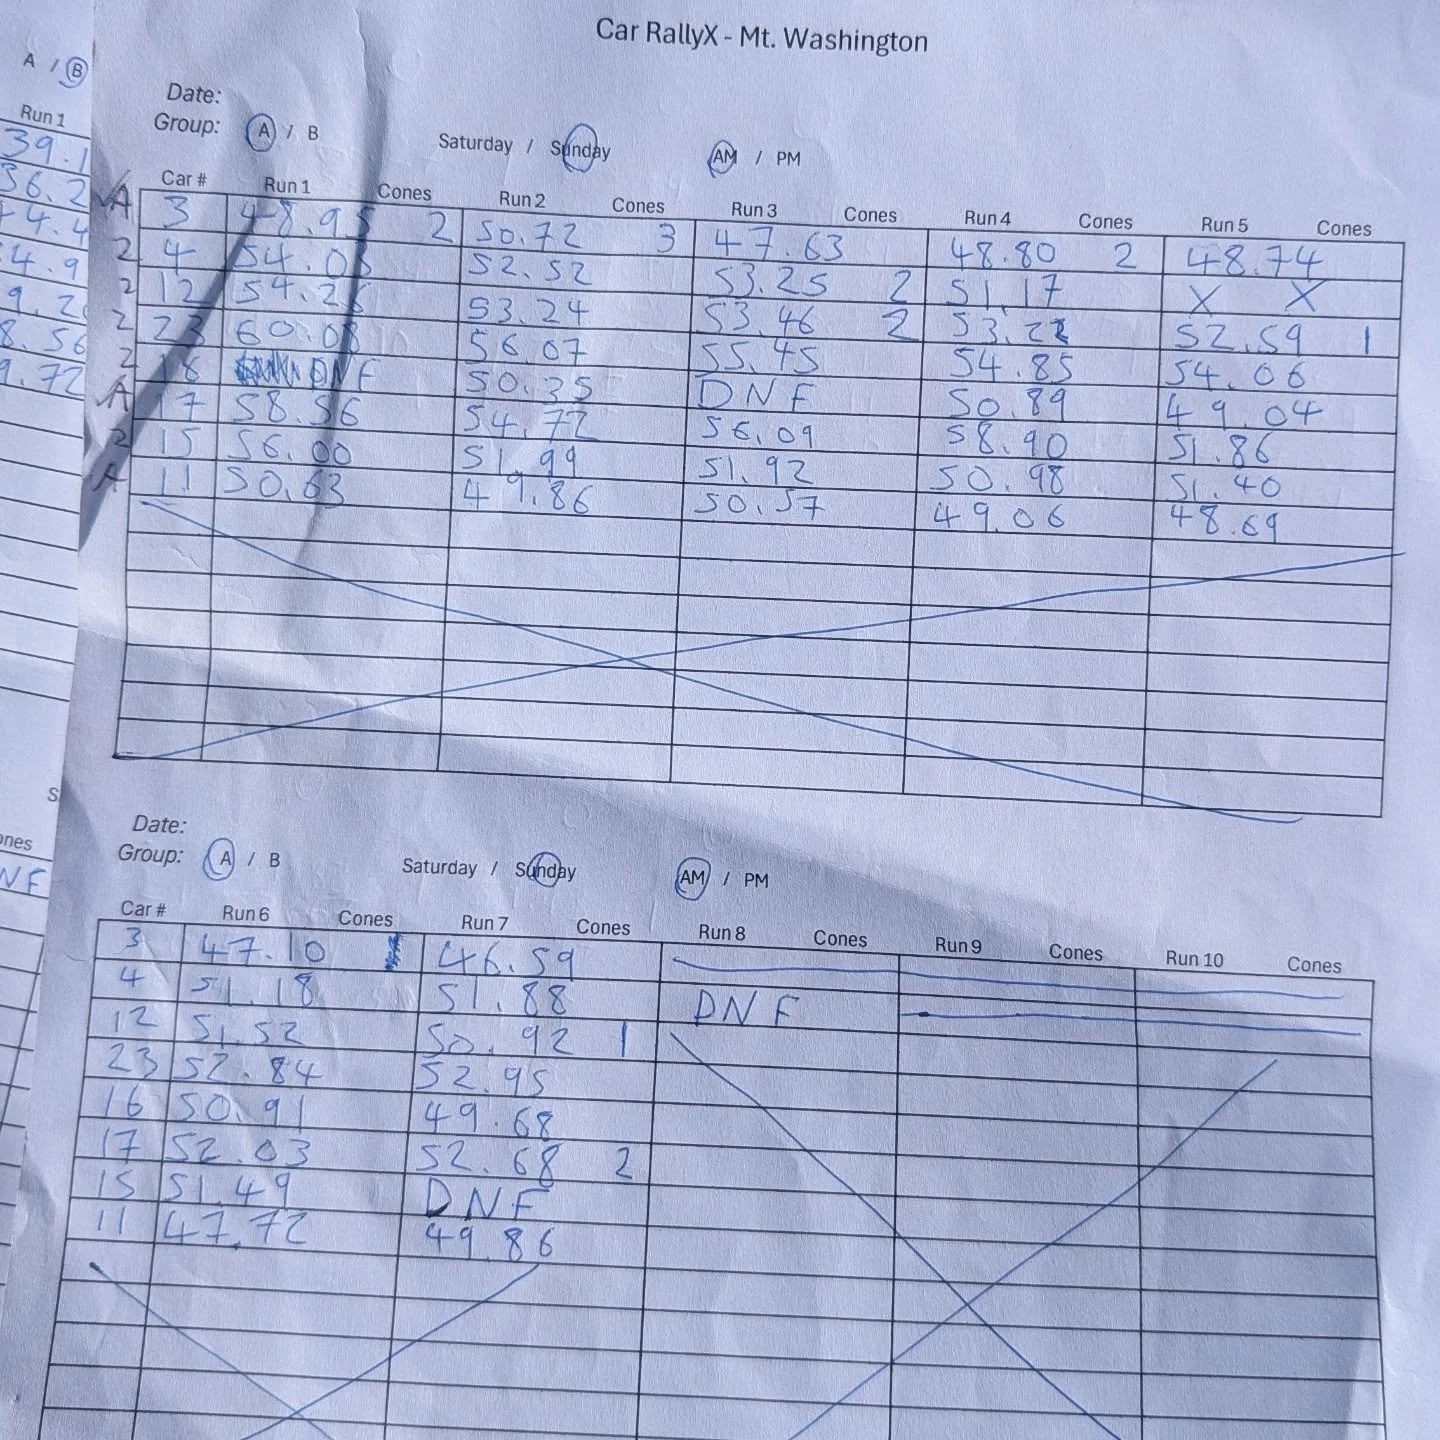 Car RallyX - Mt. Washington
A / B
Run 1
39.1
36.2
44.4
4.9
9.2
8.56
9.72
ones
NF
Date:
Group: A / B Saturday / Sunday AM / PM
Car # Run 1 Cones Run 2 Cones Run 3 Cones Run 4 Cones Run 5 Cones
A 3 48.95 2 50.72 3 47.63 48.80 2 48.74
2 4 54.03 52.52 53.25 2 51.17 X X
2 12 54.26 53.24 53.46 2 53.22 52.59 1
2 23 60.08 56.07 55.45 54.85 54.06
2 DNF 50.35 DNF 50.89 49.04
A 17 58.56 54.72 56.09 58.90 51.86
2 15 56.00 51.99 51.92 50.98 51.40
A 11 50.63 49.86 50.57 49.06 48.69
Date:
Group: A / B Saturday / Sunday AM / PM
Car # Run 6 Cones Run 7 Cones Run 8 Cones Run 9 Cones Run 10 Cones
3 47.10 46.59
4 51.18 51.88 DNF
12 51.52 50.92 1
23 52.84 52.95
16 50.91 49.68
17 52.03 52.68 2
15 51.49 DNF
11 47.72 49.86